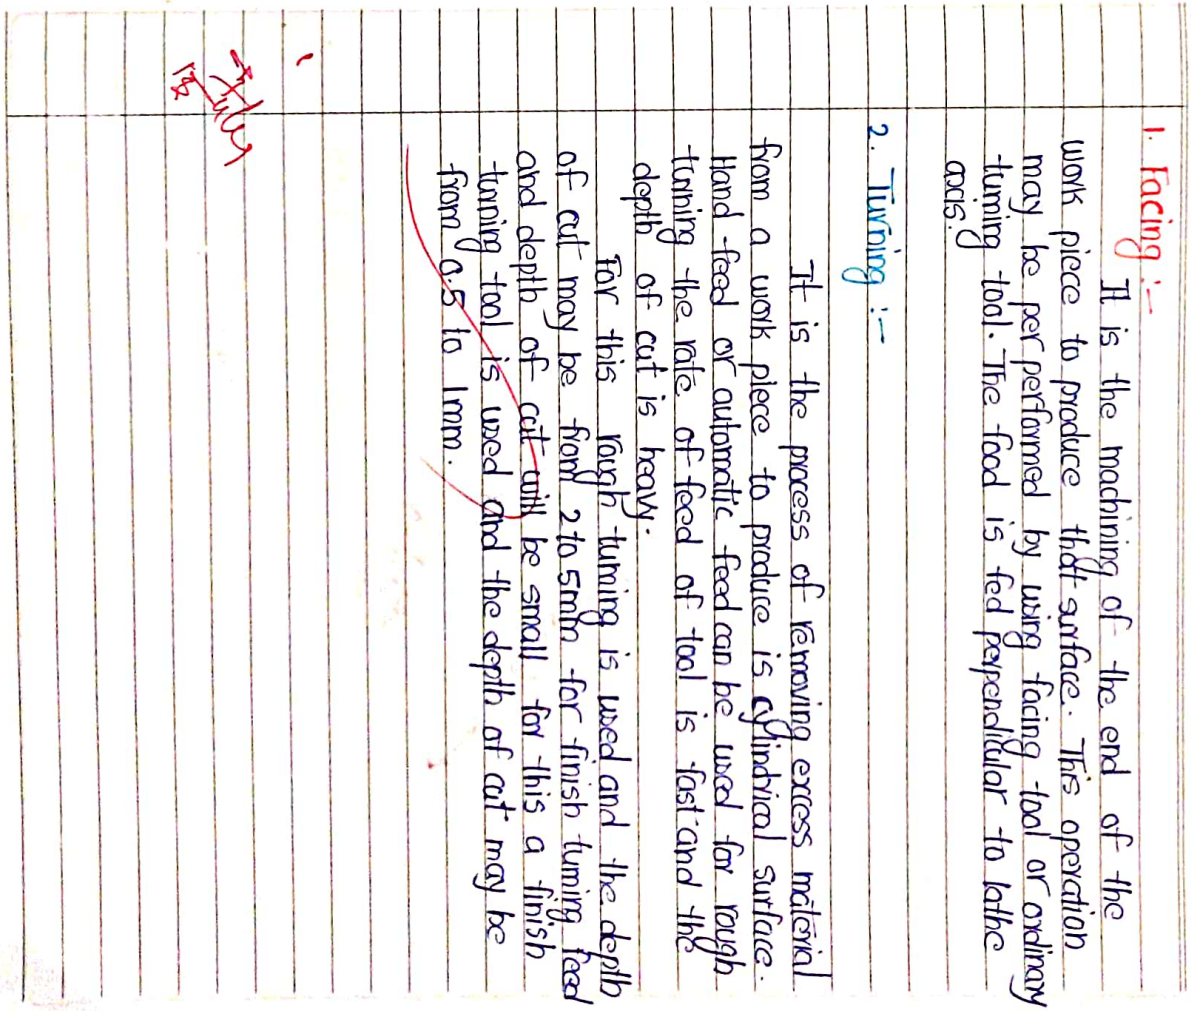 1. Facing :-
It is the machining of the end of the
work piece to produce that surface. This operation
may be per performed by using facing tool or ordinary
turning tool. The food is fed perpendicular to lathe
axis.
2. Turning :-
It is the process of removing excess material
from a work piece to produce is cylindrical surface.
Hand feed or automatic feed can be used for rough
turning the rate of feed of tool is fast and the
depth of cut is heavy.
For this rough turning is used and the depth
of cut may be from 2 to 5mm for finish turning feed
and depth of cut will be small for this a finish
turning tool is used and the depth of cut may be
from 0.5 to 1mm.